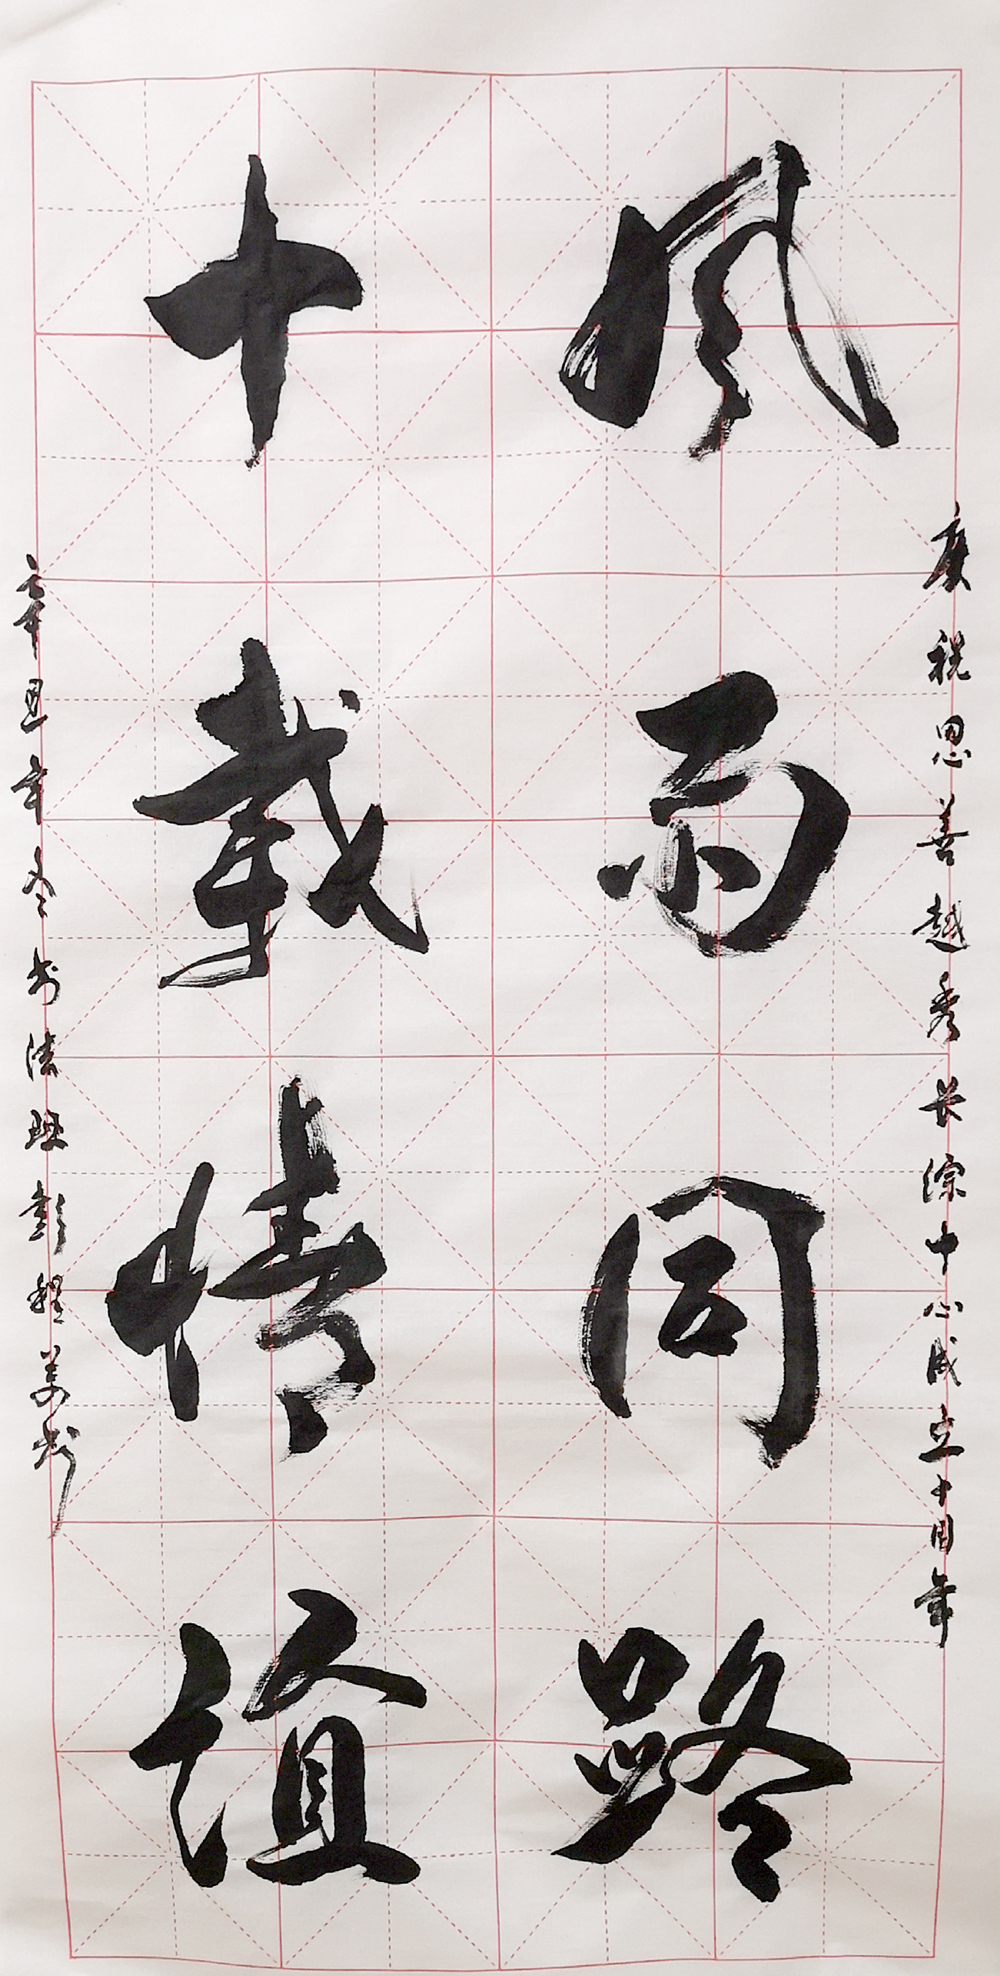 庆祝思善越秀长综中心成立十周年
风雨同路
十载情谊
辛丑年冬书法班彭程万书